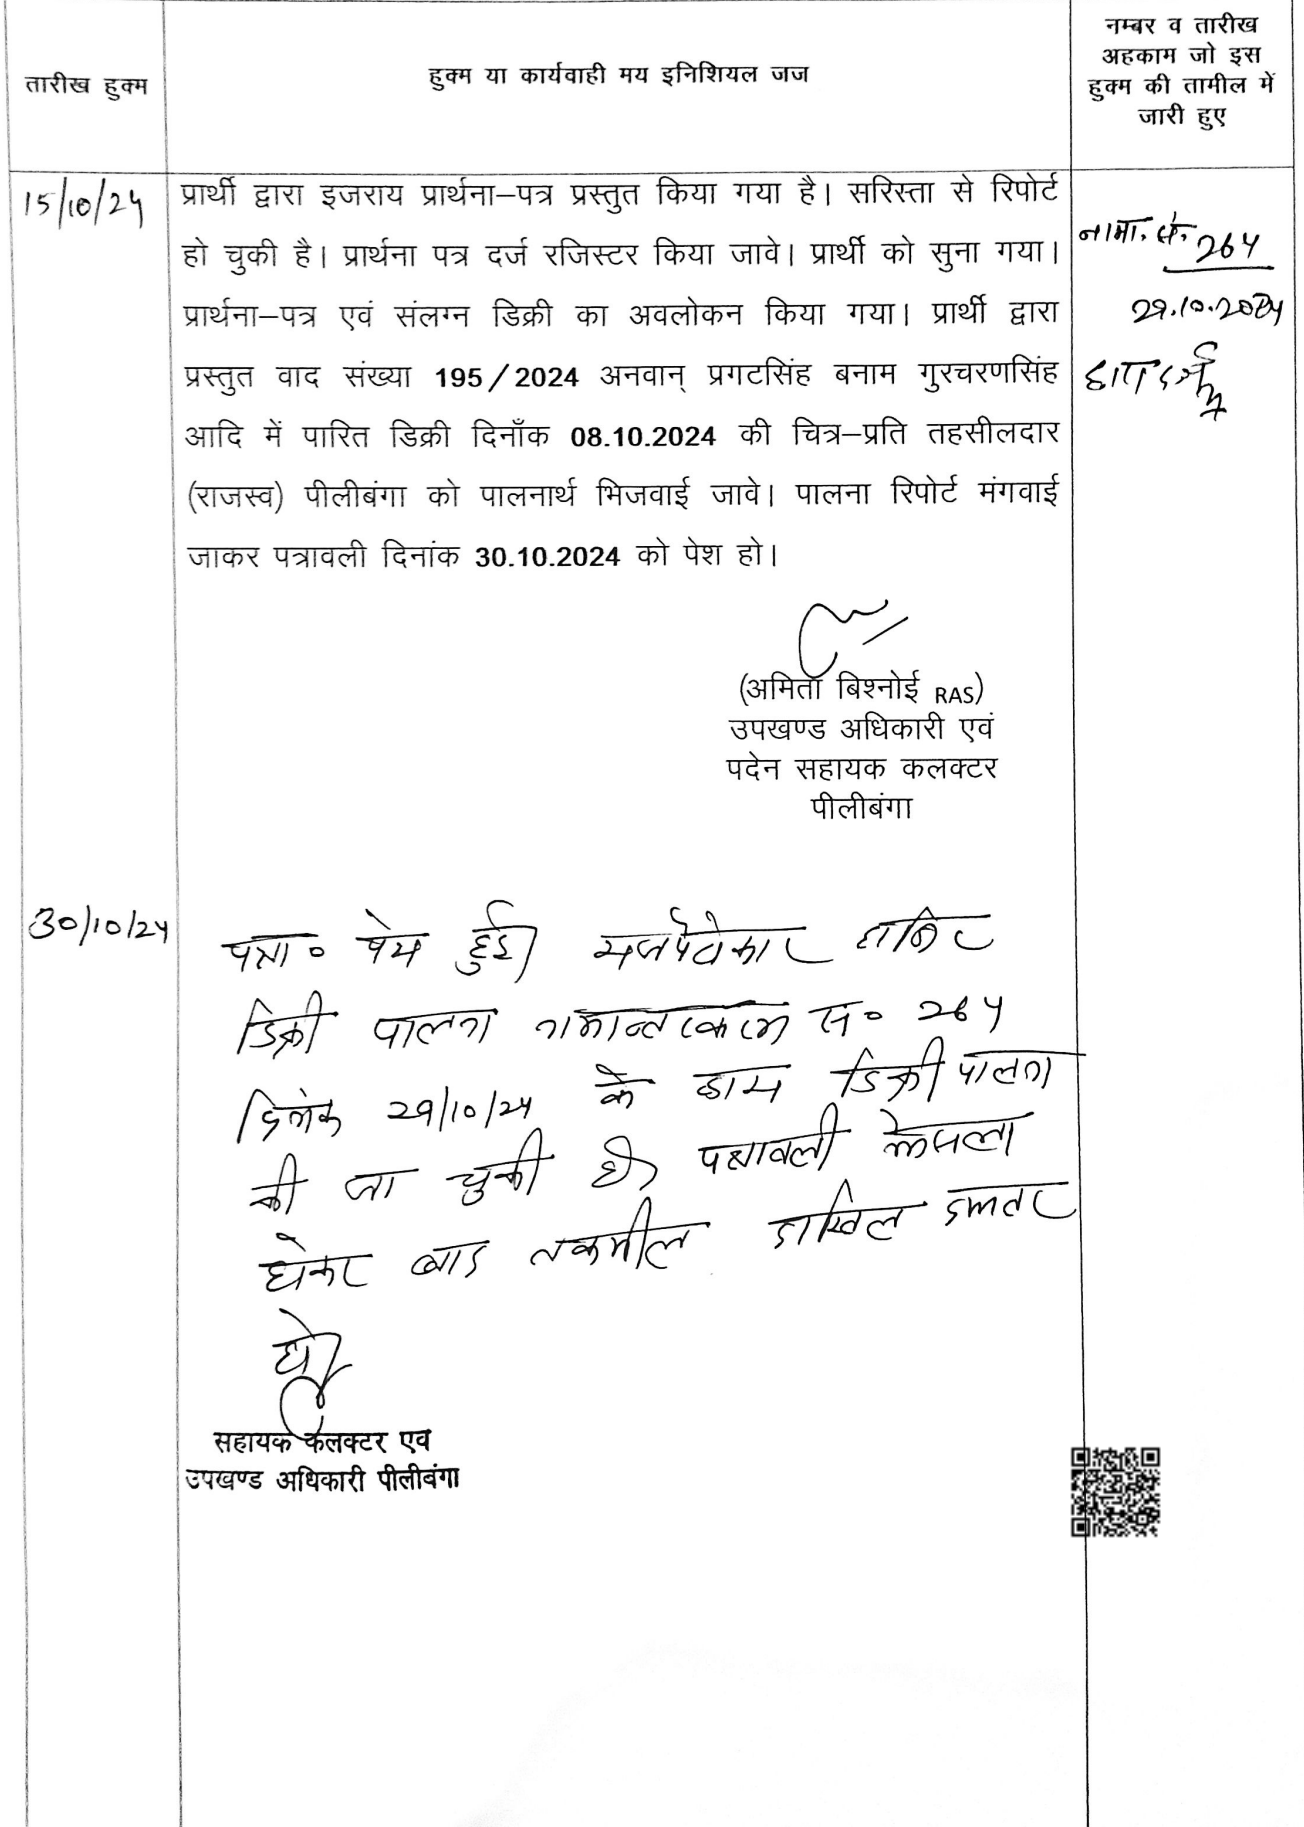 तारीख हुक्म
हुक्म या कार्यवाही मय इनिशियल जज
नम्बर व तारीख
अहकाम जो इस
हुक्म की तामील में
जारी हुए
15/10/24
प्रार्थी द्वारा इजराय प्रार्थना–पत्र प्रस्तुत किया गया है। सरिस्ता से रिपोर्ट
हो चुकी है। प्रार्थना पत्र दर्ज रजिस्टर किया जावे। प्रार्थी को सुना गया।
प्रार्थना–पत्र एवं संलग्न डिक्री का अवलोकन किया गया। प्रार्थी द्वारा
प्रस्तुत वाद संख्या 195/2024 अनवान् प्रगटसिंह बनाम गुरचरणसिंह
आदि में पारित डिक्री दिनाँक 08.10.2024 की चित्र–प्रति तहसीलदार
(राजस्व) पीलीबंगा को पालनार्थ भिजवाई जावे। पालना रिपोर्ट मंगवाई
जाकर पत्रावली दिनांक 30.10.2024 को पेश हो।
नामा. सं. 264
29.10.2024
(अमिता बिश्नोई RAS)
उपखण्ड अधिकारी एवं
पदेन सहायक कलक्टर
पीलीबंगा
30/10/24
पत्रा० पेश हुई।
डिक्री पालना नामान्तरकरण सं० 264
दिनांक 29/10/24 के द्वारा डिक्री पालना
की जा चुकी है। पत्रावली फैसला
होकर बाद तकमील दाखिल दफ्तर
हो।
सहायक कलक्टर एव
उपखण्ड अधिकारी पीलीबंगा